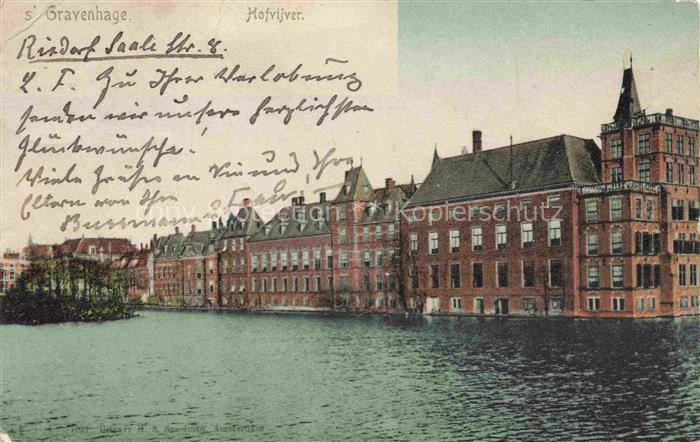 s' Gravenhage. Hofvijver.
Rixdorf Saale Str. 8.
L. F. Zu Ihrer Verlobung
senden wir unsere herzlichsten
Glückwünsche!
Viele Grüße an Sie und Ihre
Eltern von Ihr
u. Frau
Copy Protection
Kopierschutz
Uitgave H. S. Speelman, Amsterdam